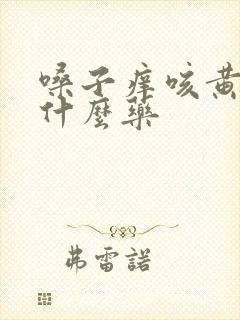 嗓子痒咳黄
什麼药
弗雷諾